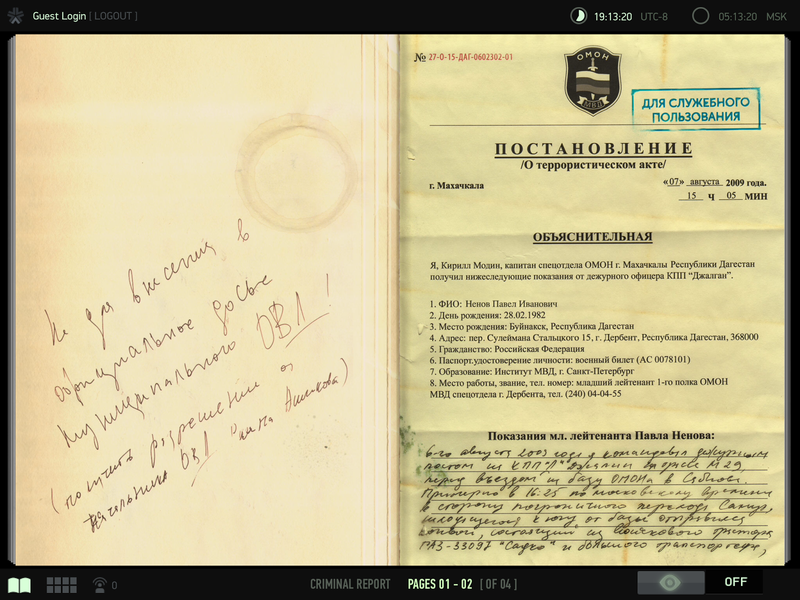 Guest Login [ LOGOUT ]
19:13:20 UTC-8
05:13:20 MSK
Не для внесения в
официальное досье
муниципального ОВД!
(получить разрешение от
начальника ОВД
№ 27-О-15-ДАГ-0602302-01
ОМОН
МВД
ДЛЯ СЛУЖЕБНОГО
ПОЛЬЗОВАНИЯ
ПОСТАНОВЛЕНИЕ
/О террористическом акте/
г. Махачкала
«07» августа 2009 года.
15 Ч 05 МИН
ОБЪЯСНИТЕЛЬНАЯ
Я, Кирилл Модин, капитан спецотдела ОМОН г. Махачкалы Республики Дагестан
получил нижеследующие показания от дежурного офицера КПП “Джалган”.
1. ФИО: Ненов Павел Иванович
2. День рождения: 28.02.1982
3. Место рождения: Буйнакск, Республика Дагестан
4. Адрес: пер. Сулеймана Стальцкого 15, г. Дербент, Республика Дагестан, 368000
5. Гражданство: Российская Федерация
6. Паспорт.удостоверение личности: военный билет (АС 0078101)
7. Образование: Институт МВД, г. Санкт-Петербург
8. Место работы, звание, тел. номер: младший лейтенант 1-го полка ОМОН
МВД спецотдела г. Дербента, тел. (240) 04-04-55
Показания мл. лейтенанта Павла Ненова:
6-го августа 2009 года я командовал дежурным
постом на КПП "Джалган" трассе М29,
перед въездом на базу ОМОНа в
Примерно в 16:25 по московскому времени
в сторону пограничного перехода Самур,
к югу, от базы отправился
конвой, состоящий из грузовика
ГАЗ-33097 "Садко" и большого транспортера,
0
CRIMINAL REPORT PAGES 01 - 02 [ OF 04 ]
OFF